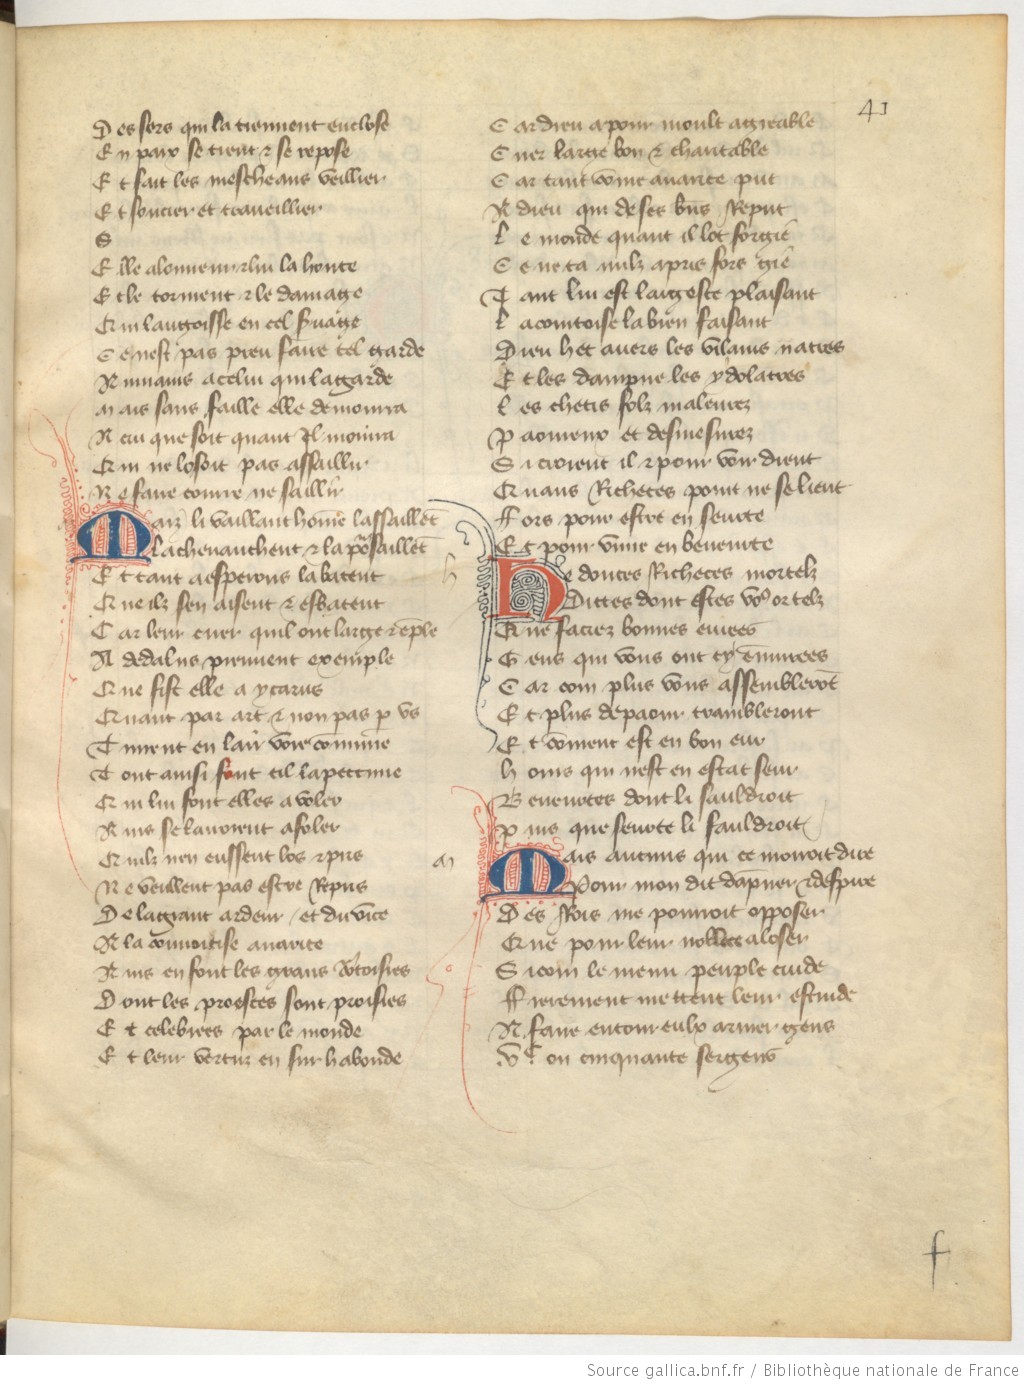 41
Des sers qui la tiennent enclose
En paix se tient ⁊ se repose
Et fait les mescheans veillier
Et soucier et traueillier
S
Elle a lonneur ⁊ lui la honte
Et le torment ⁊ le damage
Qui languisse en cel seruage
Ce nest pas preu faire tel garde
A mains a celui qui la garde
Mais sans faille elle demoura
A cui que soit quant il mourra
Qui ne losoit pas assaillir
Ne faire courre ne saillir
Maiz li vaillant home lassaillēt
La cheuauchent ⁊ la porsaillēt
Et tant a esperons la batent
Que ilz sen aisent ⁊ esbatent
Car leur cuer quil ont large ⁊ēple
A dedalus prennent exemple
Que fist elle a ycarus
Quant par art ⁊ non pas p us
Tinrent en lair voie commune
Tout ainsi font cil la peccune
Qui lui font elles a voler
Ains se lairoient afoler
Quilz nen eussent los ⁊ pris
Ne veillent pas estre repris
De la grant ardeur et du vice
A la couuoitise auarice
Ains en font les grans cortoisies
Dont les proesces sont proisies
Et celebrees par le monde
Et leur vertuz en surhabonde
Car dieu a pour moult agreable
Cuer large bon ⁊ charitable
Car tant cōme auarice put
A dieu qui de ses biens reput
Le monde quant il lot forgie
Ce ne ta nulz apris fors gie
Tant lui est largesce plaisant
La courtoise la bien faisant
Dieu het auers les vilains natres
Et les dampne les ydolatres
Les chetis folz maleurez
Paoureux et desmesurez
Si cuident il ⁊ pour voir dient
Quans Richeces point ne se lient
Fors pour estre en seurte
Et pour viure en beneurte
He douces Richeces mortelz
Dittes dont estes vous or telz
Que faciez bonnes eurees
Gens qui vous ont cy ēmurees
Car com plus vous assemblerōt
Et plus de paour trambleront
Et cōment est en bon eur
Homs qui nest en estat seur
Beneurtes dont li sauldroit
Puis que seurte li fauldroit
Mais aucuns qui ce morroit dire
Pour mon dit dāpner ⁊ despire
Des Rois me pourroit opposer
Que pour leur noblece aloser
Si com le menu peuple cuide
Fierement mettent leur estuide
A faire entour eulx armer gens
Vᶜ ou cinquante sergens
f
Source gallica.bnf.fr / Bibliothèque nationale de France